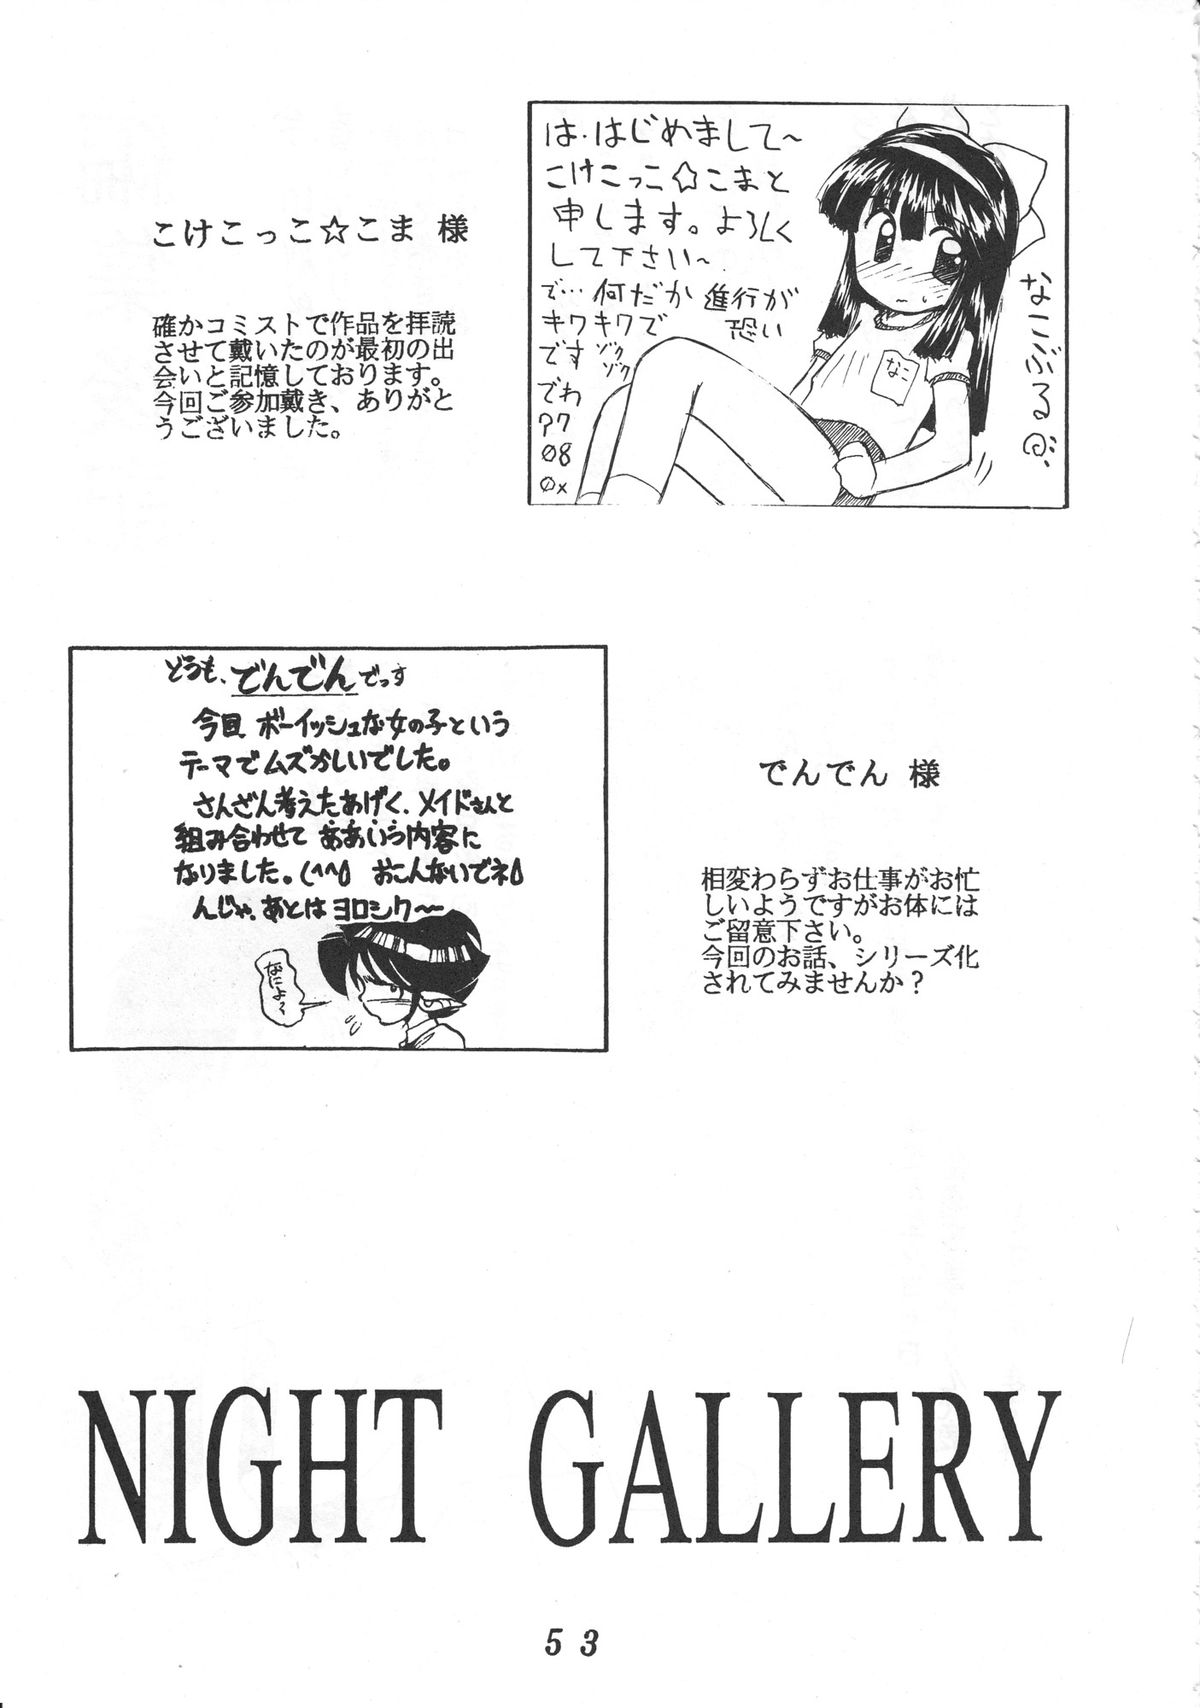 こけこっこ☆こま 様
確かコミストで作品を拝読
させて戴いたのが最初の出
会いと記憶しております。
今回ご参加戴き、ありがと
うございました。
は・はじめまして〜
こけこっこ☆こまと
申します。よろしく
して下さい〜
で…何だか進行が
キワキワで恐い
ですゾクゾク
でわ
97
08
0x
なこぶる@
なこ
どうも、でんでんでっす
今回、ボーイッシュな女の子という
テーマでムズかしいでした。
さんざん考えたあげく、メイドさんと
組み合わせて ああいう内容に
なりました。(^^; おこんないでネ
んじゃ、あとは ヨロシク〜〜
なによ〜
でんでん 様
相変わらずお仕事がお忙
しいようですがお体には
ご留意下さい。
今回のお話、シリーズ化
されてみませんか？
NIGHT GALLERY
53